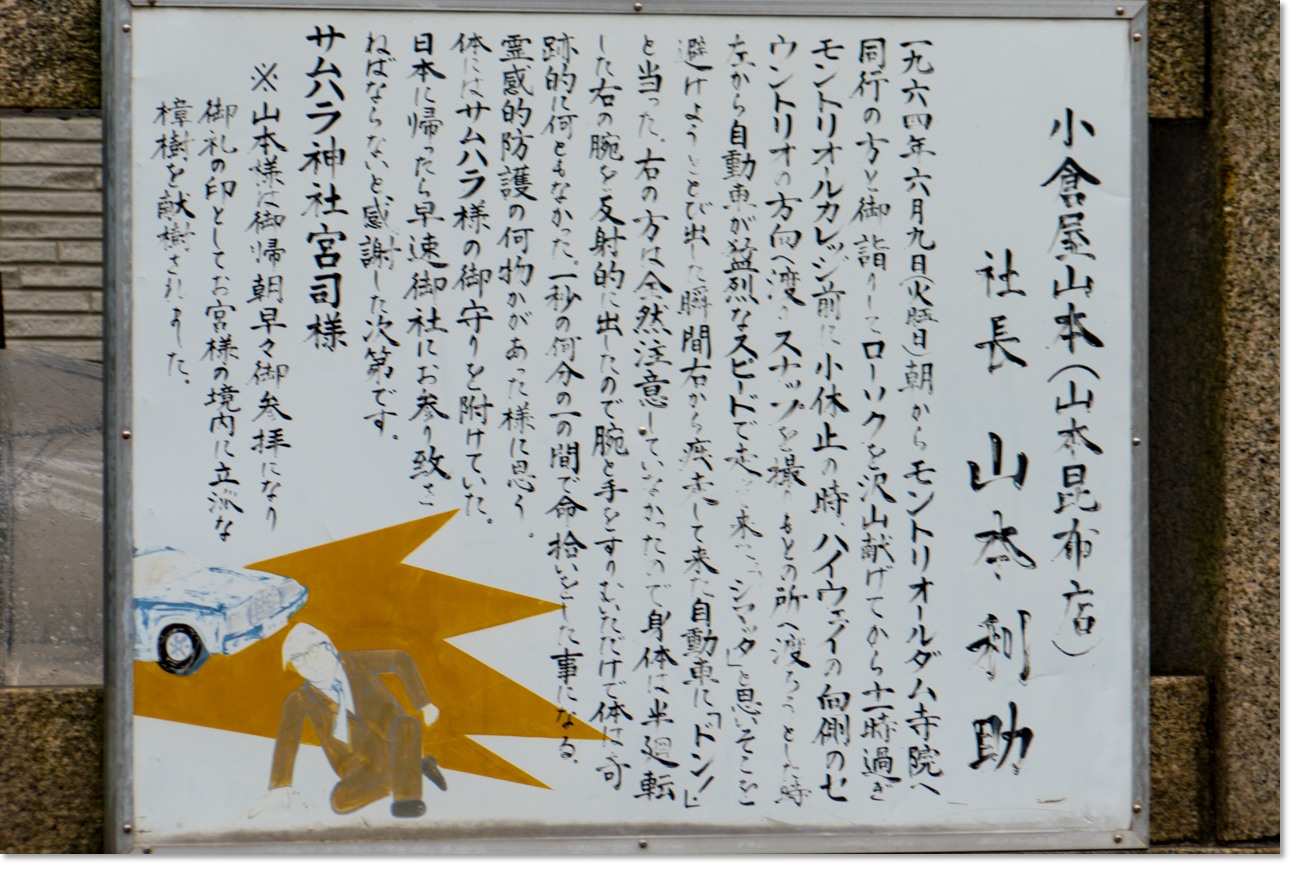 小倉屋山本(山本昆布店)
社長 山本利助
一九六四年六月九日(火曜日)朝からモントリオールダム寺院へ
同行の方と御詣りしてローソクを沢山献げてから十一時過ぎ
モントリオールカレッジ前に小休止の時、ハイウェイの向側のセ
ウントリオの方向へ渡りスナップを撮りもとの所へ渡ろうとした時
左から自動車が猛烈なスピードで走って来た「シマッタ」と思いそこを
避けようととび出した瞬間右から疾走して来た自動車に「ドン!」
と当った、右の方は全然注意していなかったので身体は半廻転
した右の腕を反射的に出したので腕と手をすりむいただけで体は奇
跡的に何ともなかった。一秒の何分の一の間で命拾いをした事になる。
霊感的防護の何物かがあった様に思う。
体にはサムハラ様の御守りを附けていた。
日本に帰ったら早速御社にお参り致さ
ねばならないと感謝した次第です。
サムハラ神社宮司様
※山本様は御帰朝早々御参拝になり
御礼の印としてお宮様の境内に立派な
樟樹を献樹されました。